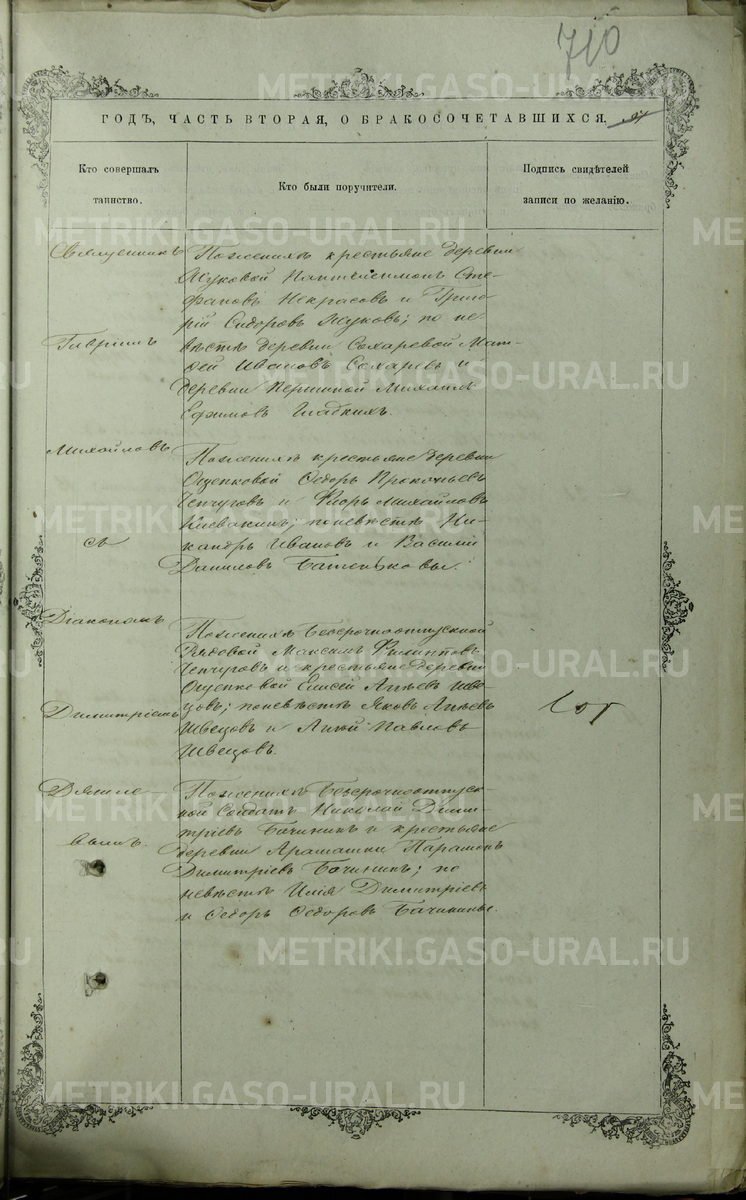 710
ГОДЪ, ЧАСТЬ ВТОРАЯ, О БРАКОСОЧЕТАВШИХСЯ.
Кто совершалъ
таинство.
Кто были поручители.
Подпись свидѣтелей
записи по желанію.
Священникъ
Гавріилъ
Михайловъ
съ
Діакономъ
Димитріемъ
Дягиле-
вымъ.
По женихѣ крестьяне деревни
Жуковой Пантелеимонъ Сте-
фановъ Некрасовъ и Григо-
рій Сидоровъ Жуковъ; по не
вѣстѣ деревни Сохаревой Мат-
ѳей Ивановъ Сохаревъ и
деревни Першиной Михаилъ
Ефимовъ Гладкихъ.
По женихѣ крестьяне деревни
Ощепковой Ѳедоръ Прокопьевъ
Чепчуговъ и Флоръ Михайловъ
Киевакинъ; по невѣстѣ Ни-
кандръ Ивановъ и Василій
Даниловъ Батеньковы.
По женихѣ безсрочноотпускной
Рядовой Максимъ Филипповъ
Чепчуговъ и крестьяне деревни
Ощепковой Елисей Агѣевъ Шве-
цовъ; по невѣстѣ Яковъ Агѣевъ
Швецовъ и Павловъ
Швецовъ.
По женихѣ безсрочноотпуск-
ной Солдатъ Николай Дими-
тріевъ Бачининъ и крестьяне
деревни Арамашки Парамонъ
Димитріевъ Бачининъ; по
невѣстѣ Илія Димитріевъ
и Ѳедоръ Ѳедоровъ Бачинины.
METRIKI.GASO-URAL.RU